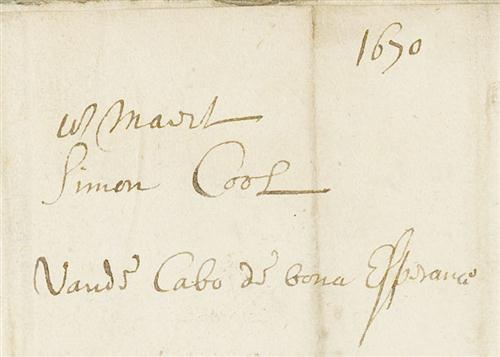 1670
Maert
Simon Cool
Vande Cabo de bona Esperance